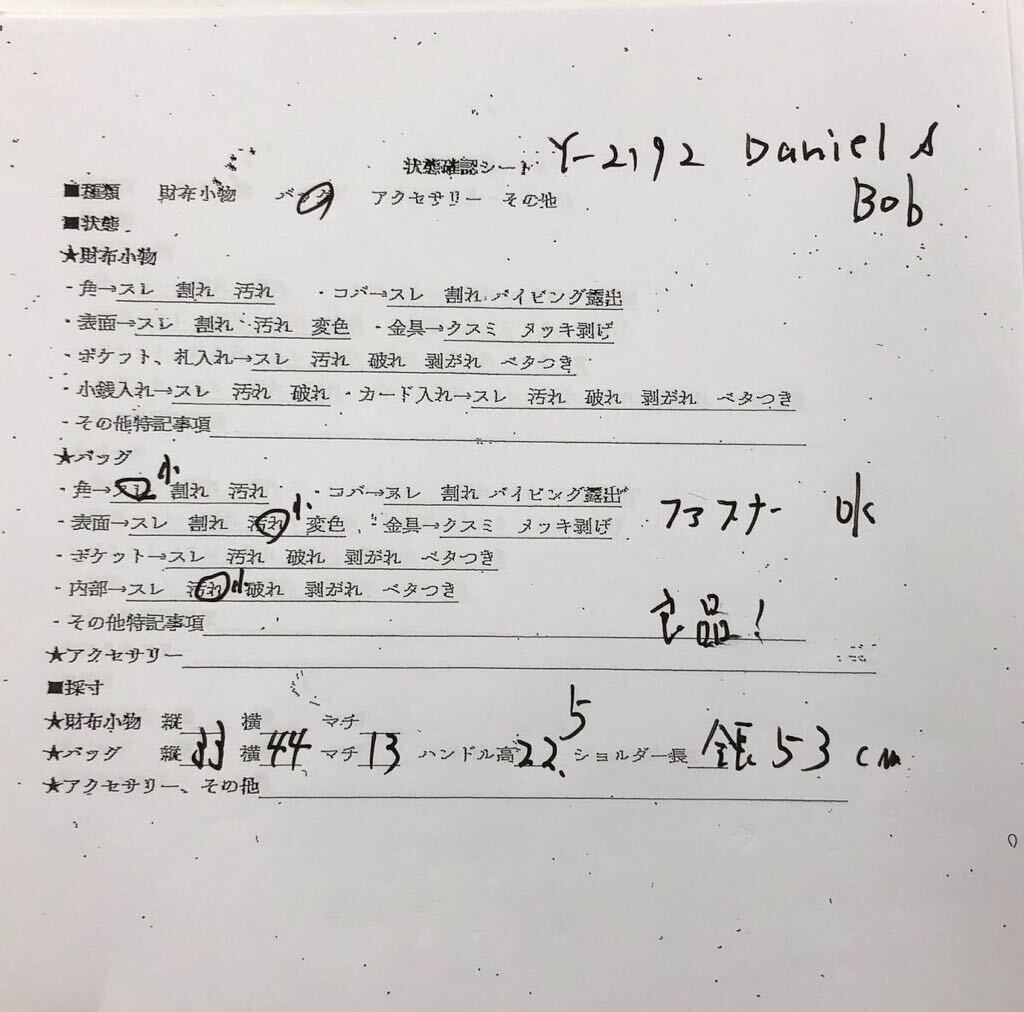 状態確認シート Y-2192 Daniel &
Bob
■種類 財布小物 バッグ アクセサリー その他
■状態
★財布小物
・角→スレ 割れ 汚れ ・コバ→スレ 割れ パイピング露出
・表面→スレ 割れ 汚れ 変色 ・金具→クスミ メッキ剥げ
・ポケット、札入れ→スレ 汚れ 破れ 剥がれ ベタつき
・小銭入れ→スレ 汚れ 破れ ・カード入れ→スレ 汚れ 破れ 剥がれ ベタつき
・その他特記事項
★バッグ
・角→スレ 小 割れ 汚れ ・コバ→スレ 割れ パイピング露出
・表面→スレ 割れ 汚れ 小 変色 ・金具→クスミ メッキ剥げ ファスナー ok
・ポケット→スレ 汚れ 破れ 剥がれ ベタつき
・内部→スレ 汚れ 小 破れ 剥がれ ベタつき
・その他特記事項 良品!
★アクセサリー
■採寸
★財布小物 縦 横 マチ
★バッグ 縦 33 横 44 マチ 13 ハンドル高 22.5 ショルダー長 全長 53 cm
★アクセサリー、その他